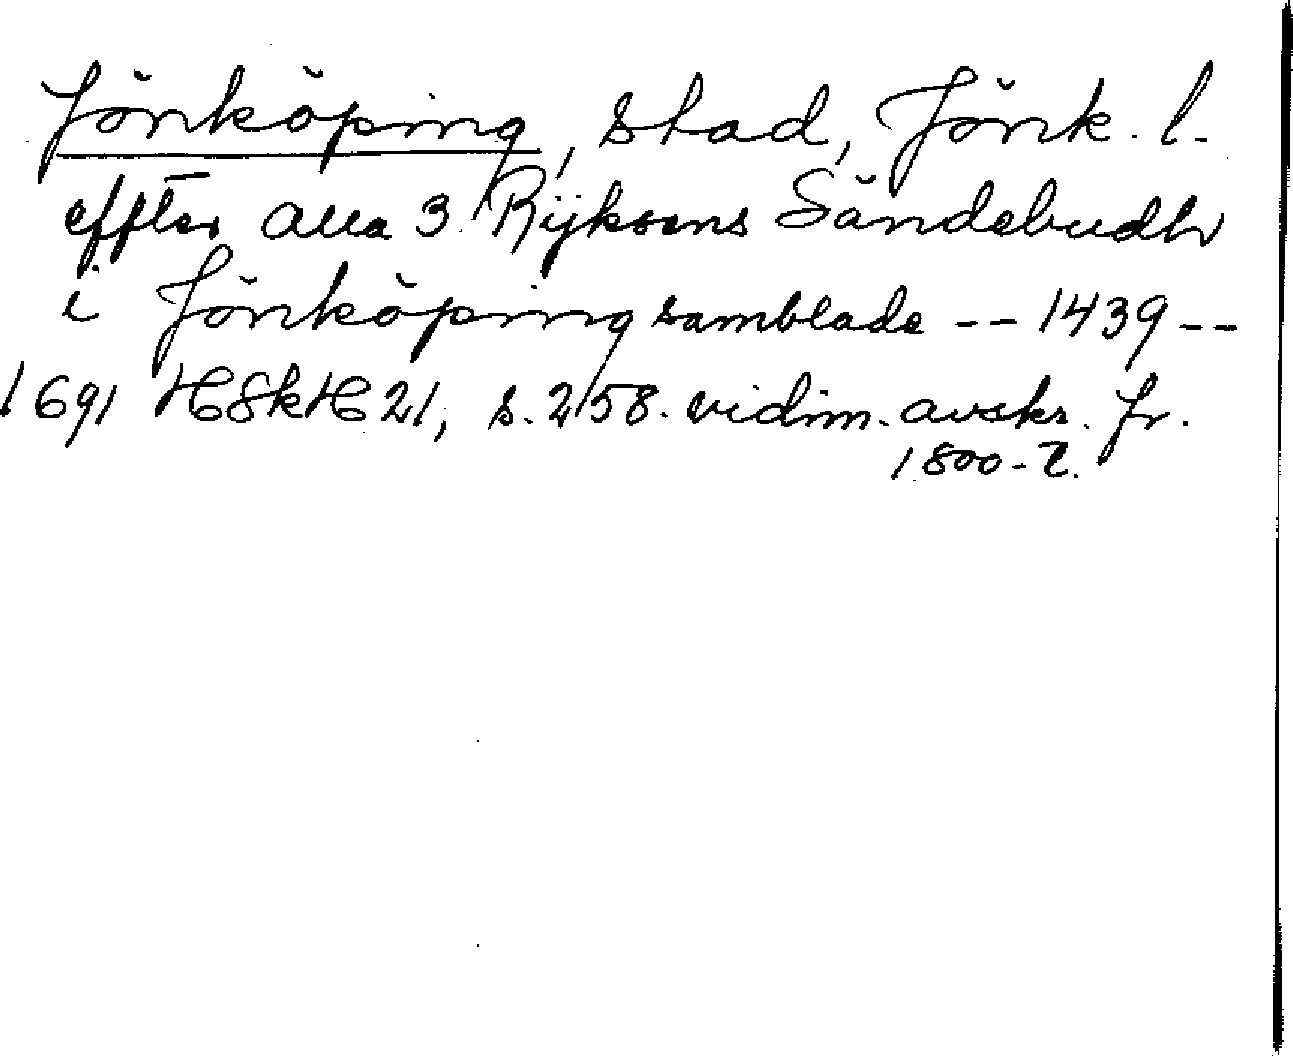 Jönköping, stad, Jönk. l.
effter alla 3 Rijksens Sändebudh
i Jönköping samblade -- 1439 --
1691 HSkH 21, s. 258. vidim. avskr. fr.
1800-t.